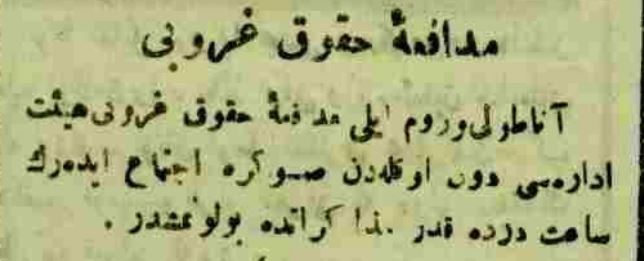 مدافعهٔ حقوق غروبی
آناطولی وروم ایلی مدافعهٔ حقوق غروبی هیئت
اداره‌سی دون اوکله‌دن صوکره اجتماع ایده‌رك
ساعت درده قدر مذاکراتده بولونمشدر .